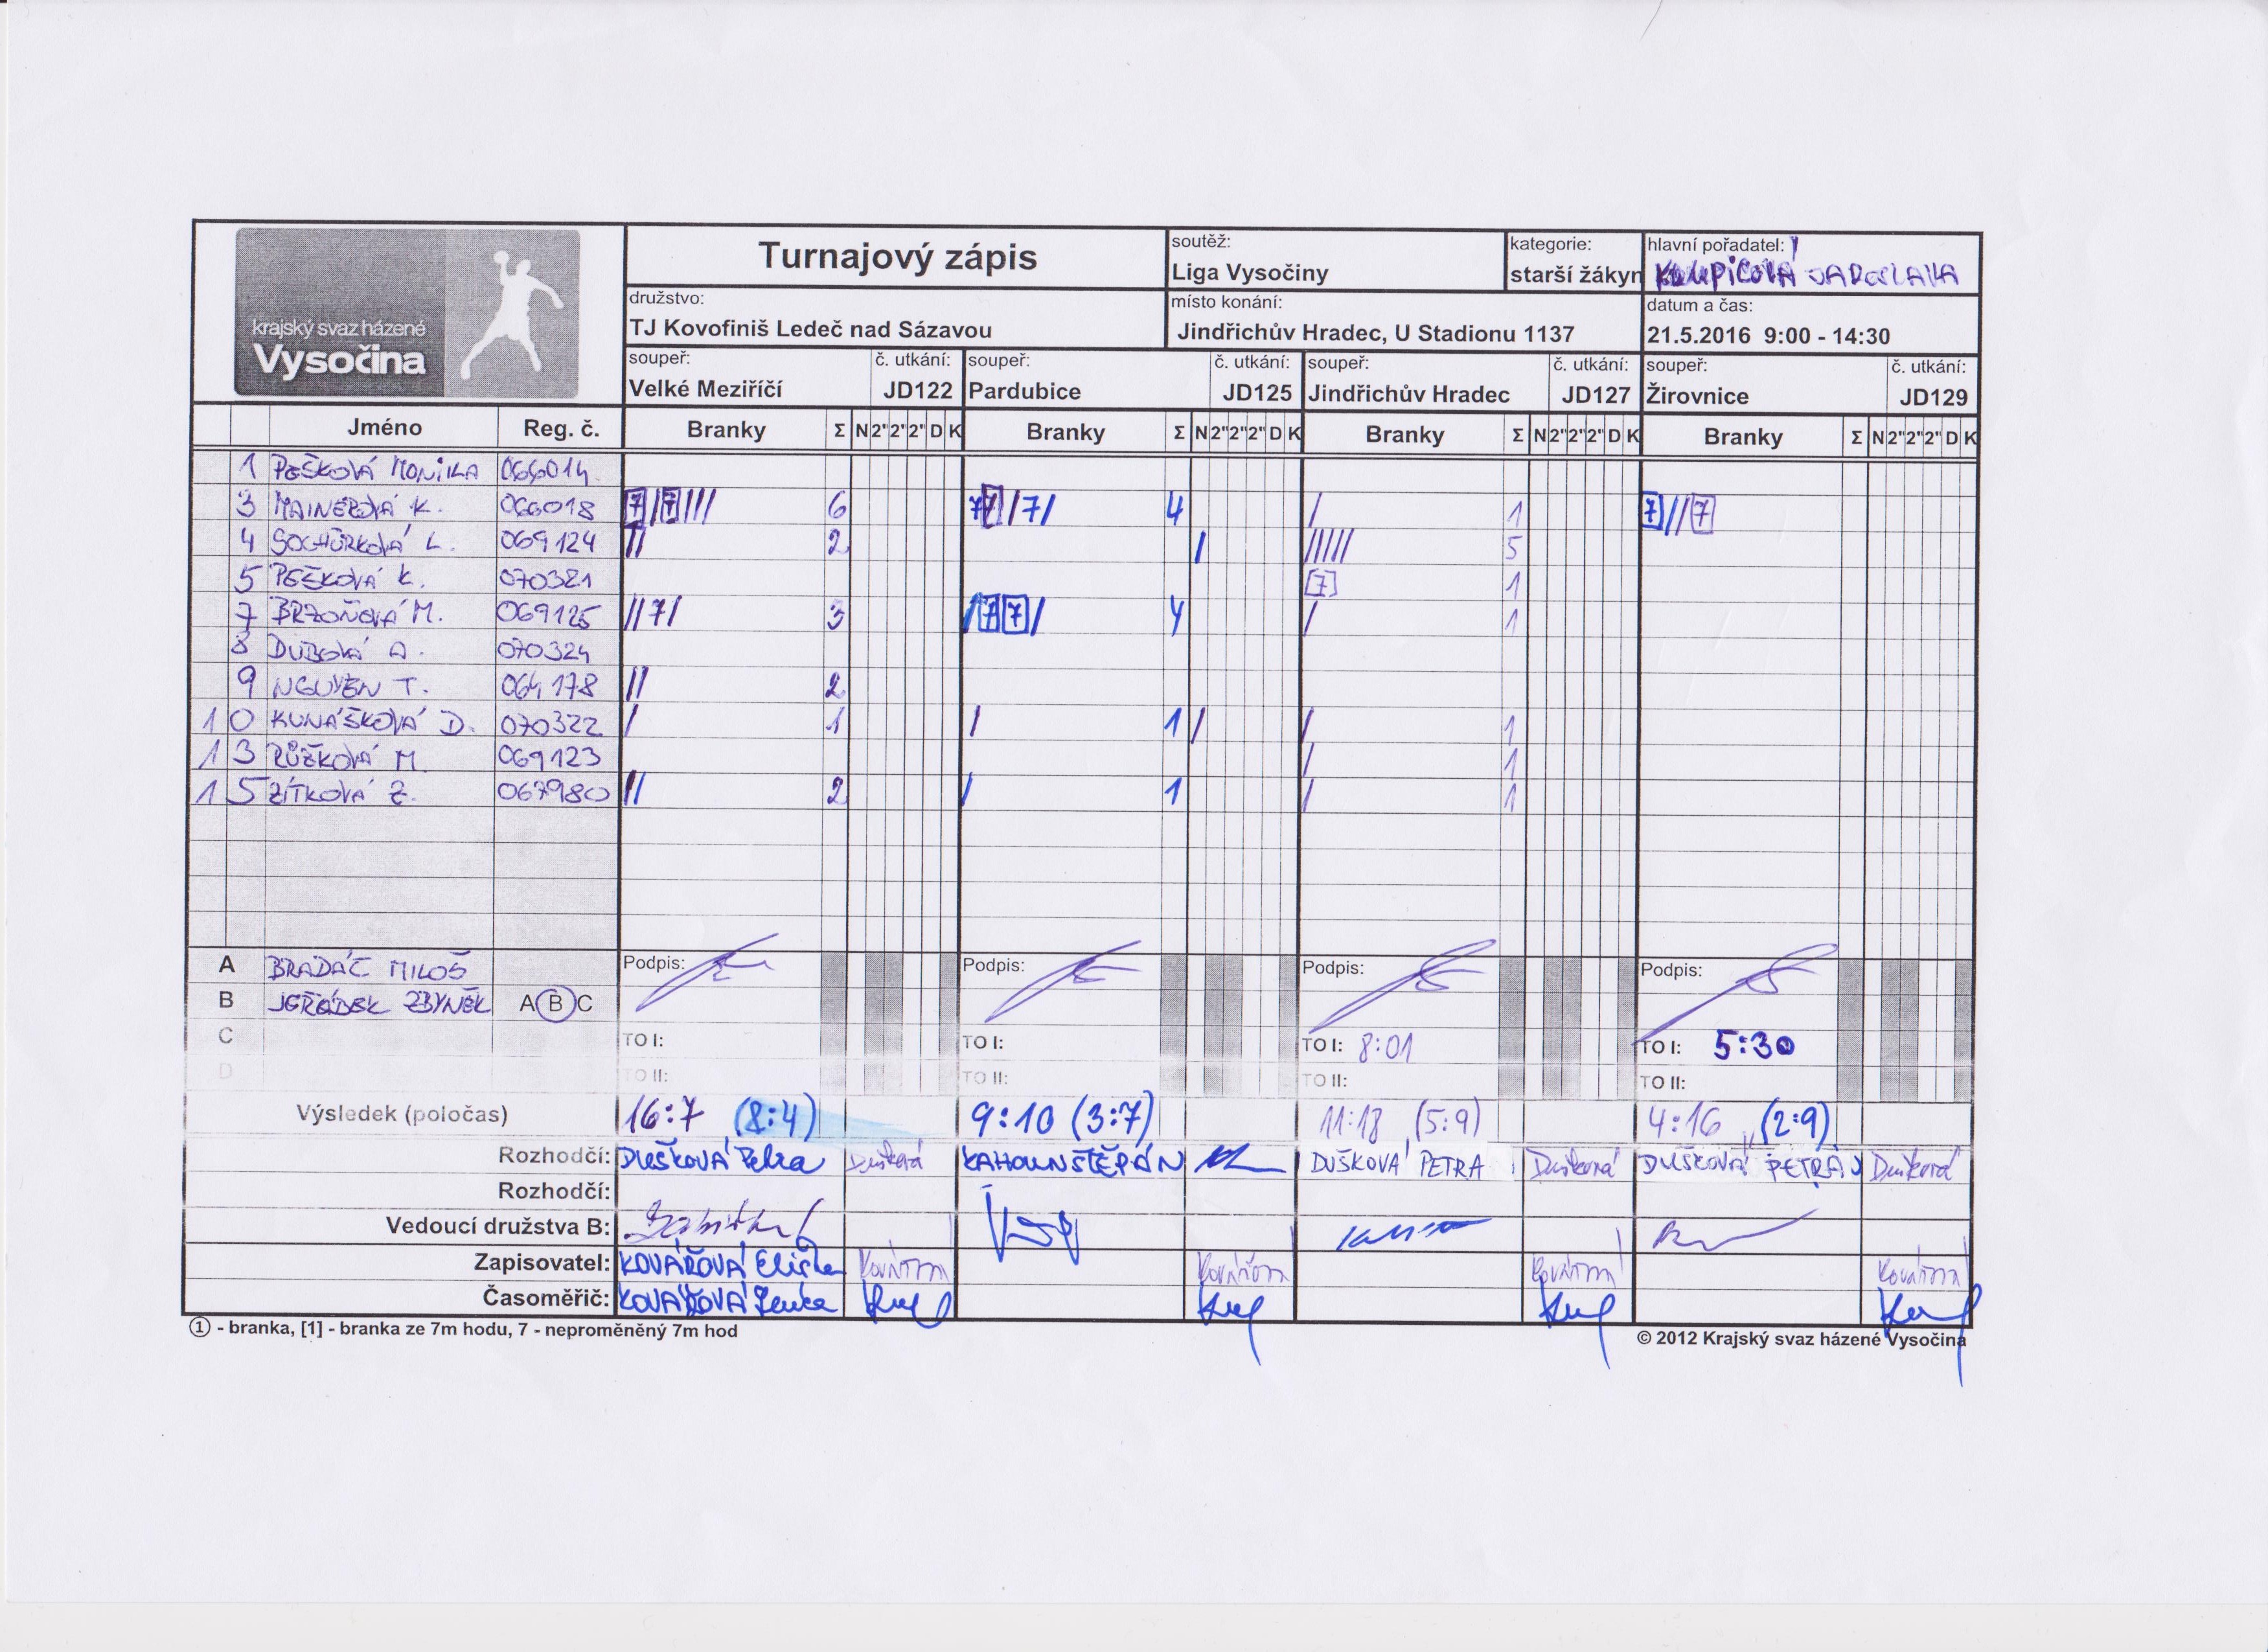 krajský svaz házené
Vysočina
Turnajový zápis
soutěž:
Liga Vysočiny
kategorie:
starší žákyn
hlavní pořadatel:
JAROSLAVA
družstvo:
TJ Kovofiniš Ledeč nad Sázavou
místo konání:
Jindřichův Hradec, U Stadionu 1137
datum a čas:
21.5.2016 9:00 - 14:30
soupeř: č. utkání: soupeř: č. utkání: soupeř: č. utkání: soupeř: č. utkání:
Velké Meziříčí JD122 Pardubice JD125 Jindřichův Hradec JD127 Žirovnice JD129
Jméno Reg. č. Branky Σ N 2" 2" 2" D K Branky Σ N 2" 2" 2" D K Branky Σ N 2" 2" 2" D K Branky Σ N 2" 2" 2" D K
1 PEŠKOVÁ MONIKA 066014
3 MAINEROVÁ K. 066018 [7]/[7]/// 6 7[7]/7/ 4 / 1 [7]//[7]
4 SOCHŮRKOVÁ L. 069124 // 2 / ///// 5
5 PEŠKOVÁ K. 070321 [7] 1
7 BRZOŇOVÁ M. 069125 //7/ 3 /[7][7]/ 4 / 1
8 DUBSKÁ A. 070324
9 NGUYEN T. 064178 // 2
10 KUNÁŠKOVÁ D. 070322 / 1 / 1 / / 1
13 RŮŽKOVÁ M. 069123 / 1
15 ZÍTKOVÁ Z. 067980 // 2 / 1 / 1
A BRADÁČ MILOŠ Podpis: Podpis: Podpis: Podpis:
B JEŘÁBEK ZBYNĚK A B C
C TO I: TO I: TO I: 8:01 TO I: 5:30
D TO II: TO II: TO II: TO II:
Výsledek (poločas) 16:7 (8:4) 9:10 (3:7) 11:18 (5:9) 4:16 (2:9)
Rozhodčí: DUŠKOVÁ Petra Dušková KAHOUN ŠTĚPÁN DUŠKOVÁ PETRA Dušková DUŠKOVÁ PETRA Dušková
Rozhodčí:
Vedoucí družstva B:
Zapisovatel: KOVÁŘOVÁ Eliška Kovářová Kovářová Kovářová Kovářová
Časoměřič: KOVÁŘOVÁ Lenka
① - branka, [1] - branka ze 7m hodu, 7 - neproměněný 7m hod
© 2012 Krajský svaz házené Vysočina